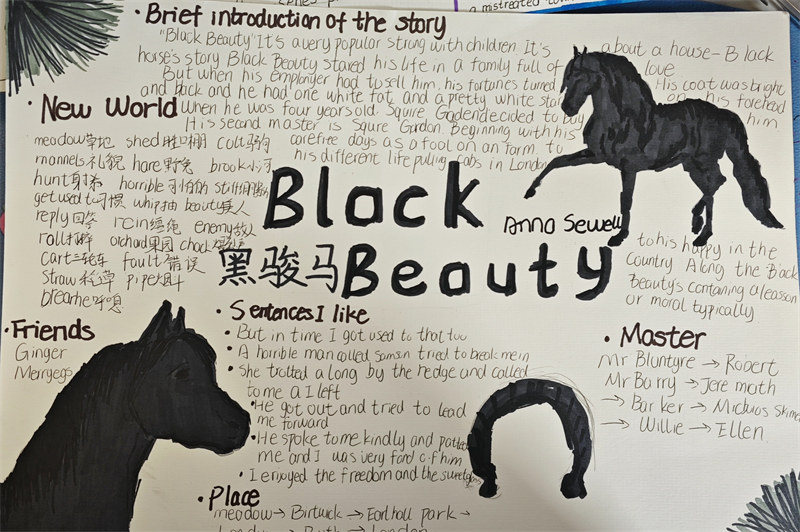 a mistreated
· Brief introduction of the story
"Black Beauty" It's a very popular strong with children It's about a house-Black
horse's story Black Beauty stared his life in a family full of love
But when his employer had to sell him. his fortunes turned His coat was bright
and back and he had one white fat and a pretty white star on his forehead
When he was four years old. Squire decided to buy him
His second master is Squre Gordon. Beginning with his
carefree days as a fool on an farm to
his different life pulling cabs in London
to his happy in the
country Along the Back
Beauty's containing a leason
or moral typically
· New World
meadow草地 shed 棚 colt马驹
mannels礼貌 hare野兔 brook小河
hunt horrible可怕的
get used to习惯 whip抽 beauty美人
reply回答 rein缰绳 enemy敌人
roll打 orchad果园
cart三轮车 fault错误
straw pipe烟斗
breathe呼吸
Black
Anna Sewell
黑骏马 Beauty
· Friends
Ginger
Merrygegs
· Sentences I like
• But in time I got used to that too
• A horrible man called samson tried to break me in
• She trotted a long by the hedge and called
to me a I left
• He got out and tried to lead
me forward
• He spoke to me kindly and patted
me and I was very ford of him
• I enjoyed the freedom and the
· Place
meadow → Birtwick → Earlhall park →
→ London
· Master
Mr Bluntyre → Robert
Mr Barry → Jere moth
→ Barker →
→ Willie → Ellen